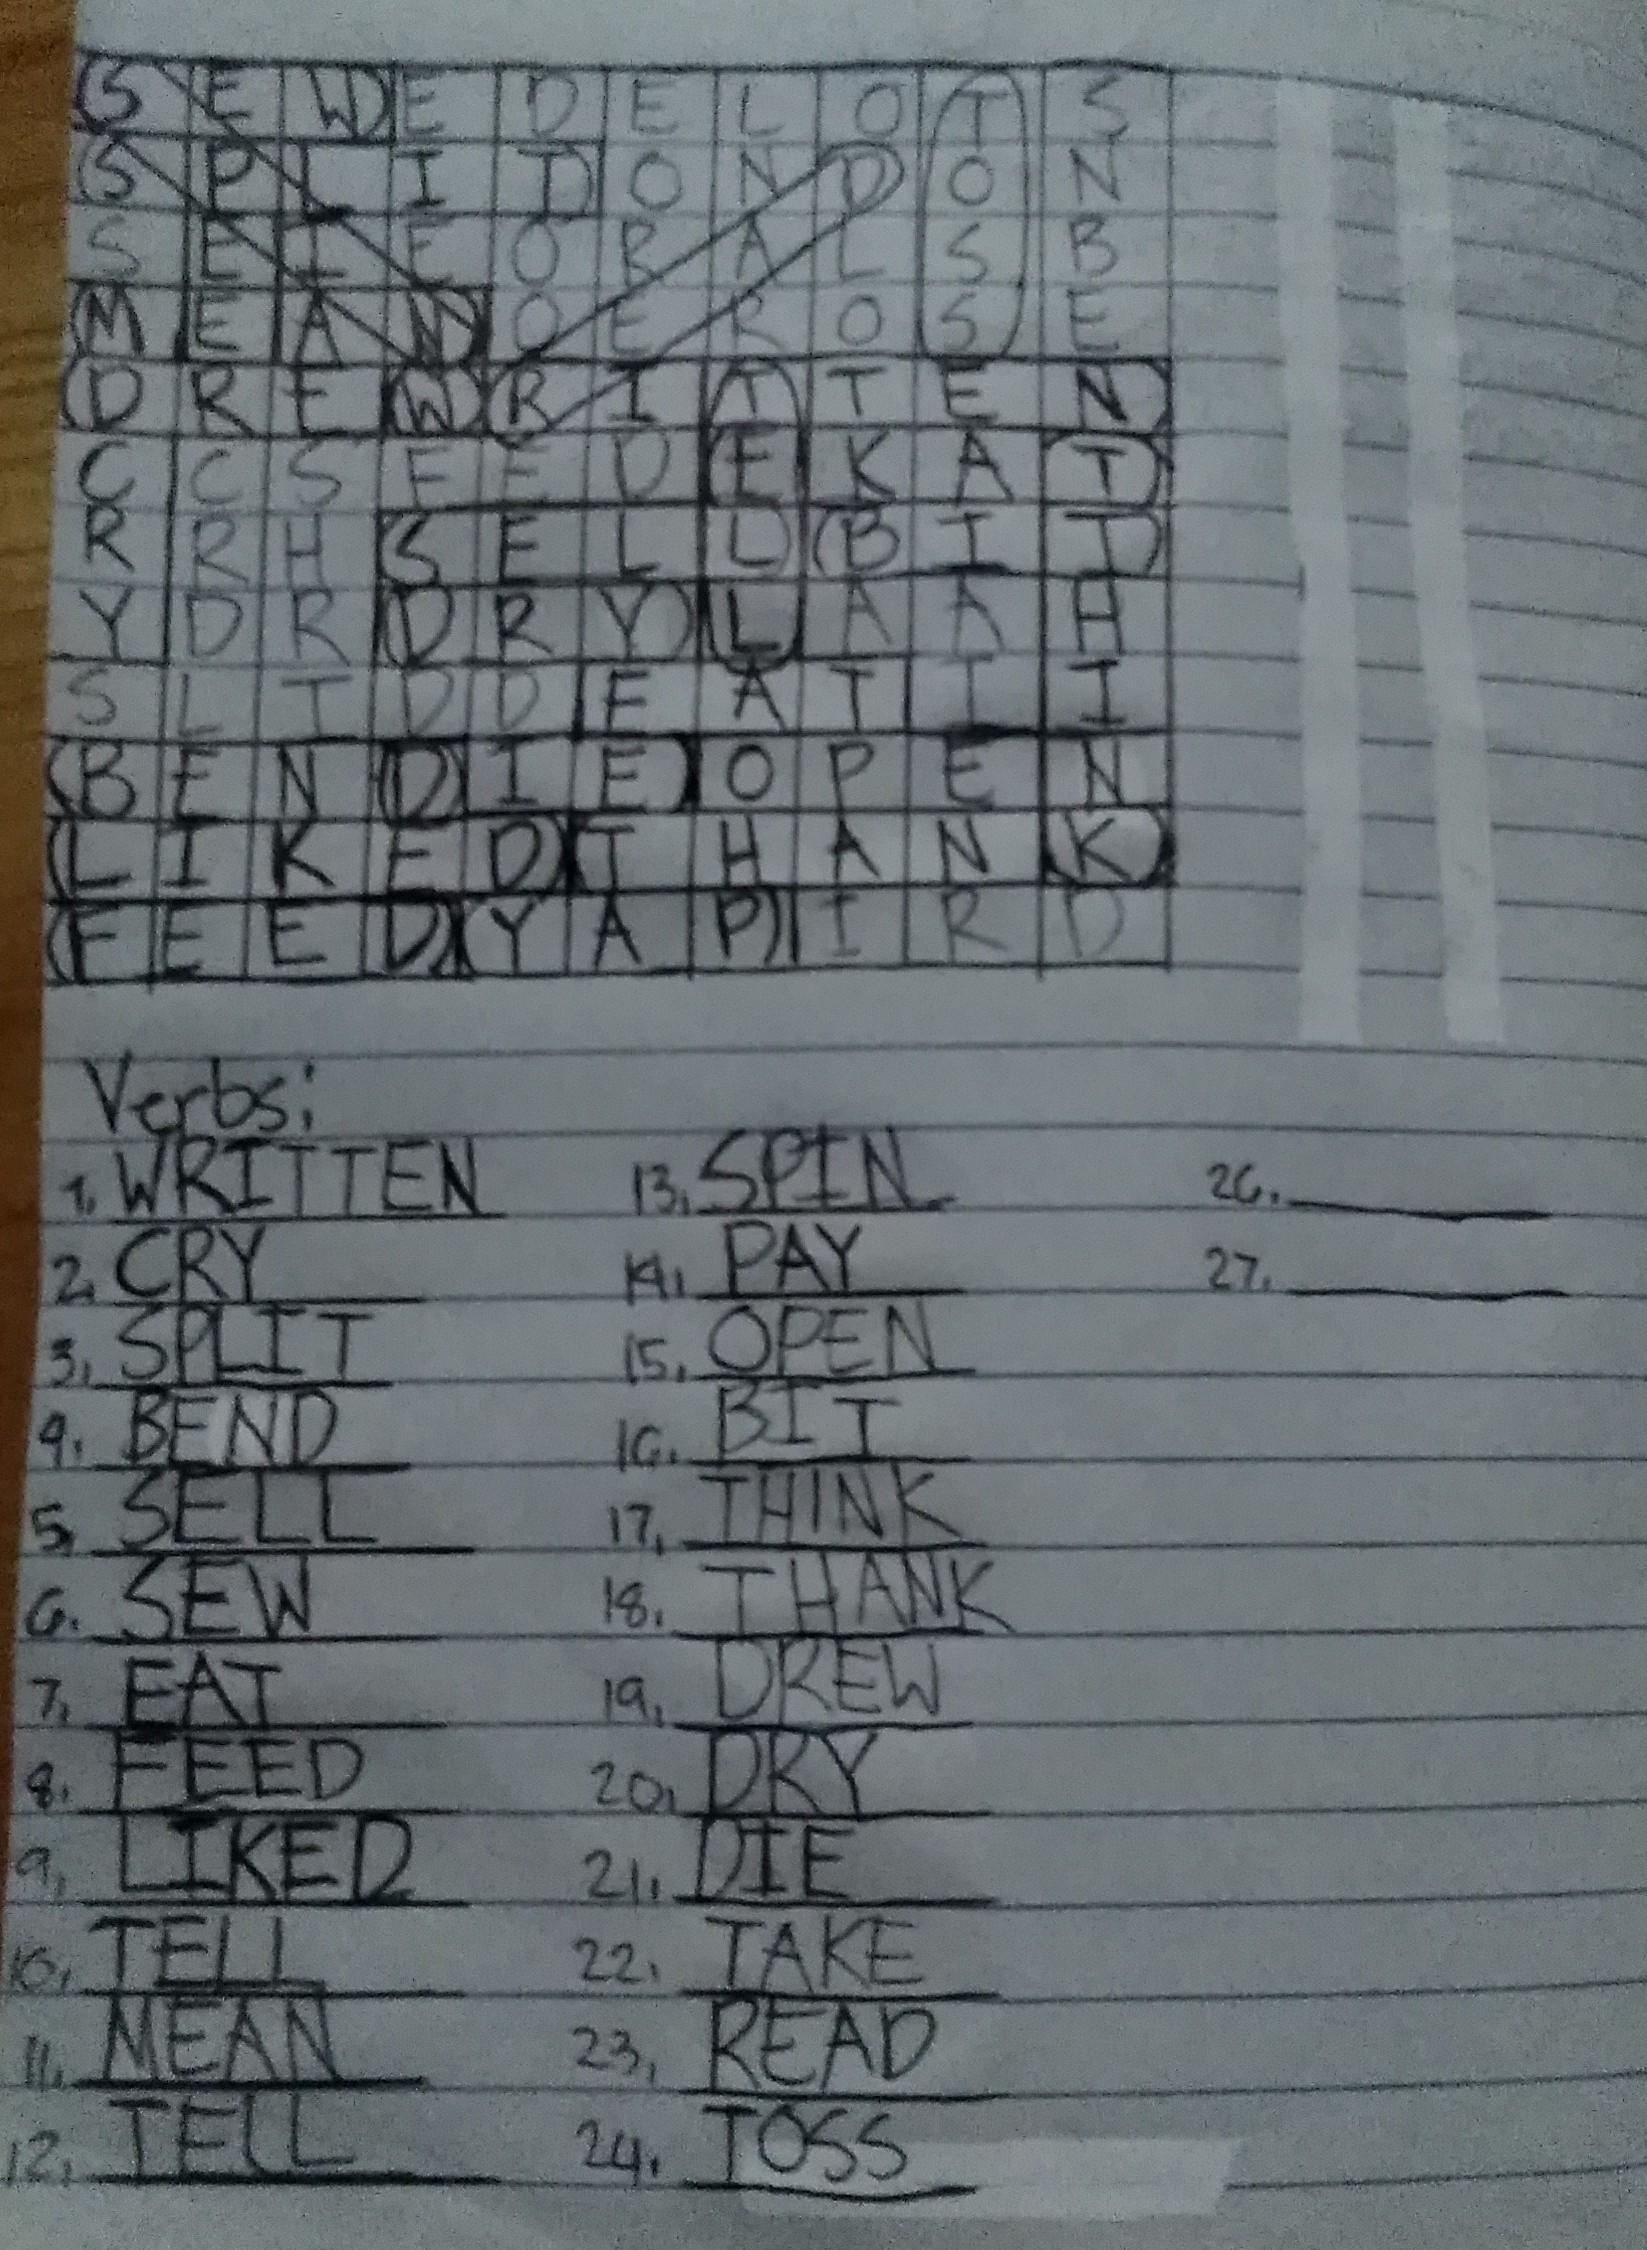 S E W E D E L O T S
S P L I T O N D O N
S E I E O R A L S B
M E A N O E R O S E
D R E W R I T T E N
C C S F E D E K A T
R R H S E L L B I T
Y D R D R Y L A A H
S L T D D E A T I I
B E N D I E O P E N
L I K E D T H A N K
F E E D Y A P I R D
Verbs:
1. WRITTEN 13. SPIN 26.
2. CRY 14. PAY 27.
3. SPLIT 15. OPEN
4. BEND 16. BIT
5. SELL 17. THINK
6. SEW 18. THANK
7. EAT 19. DREW
8. FEED 20. DRY
9. LIKED 21. DIE
10. TELL 22. TAKE
11. MEAN 23. READ
12. TELL 24. TOSS